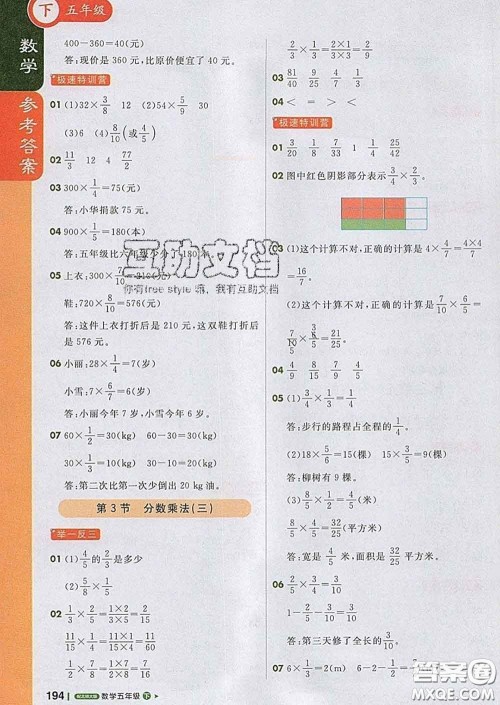 下 五年级
数学
参考答案
400-360=40(元)
答:现价是 360 元,比原价便宜了 40 元。
极速特训营
01 (1)32×3/8 12 (2)54×5/9 30
(3)6 (4)8/10(或4/5)
02 11/3 12 4 77/2
03 300×1/4=75(元)
答:小华捐款 75 元。
04 900×1/5=180(本)
答:五年级比六年级少分了 180 本。
05 上衣:300×7/10=210(元)
鞋:720×8/10=576(元)
答:这件上衣打折后是 210 元,这双鞋打折后是 576 元。
06 小丽:28×1/4=7(岁)
小雪:7×6/7=6(岁)
答:小丽今年 7 岁,小雪今年 6 岁。
07 60×1/2=30(kg) 60-30=30(kg)
30×1/3=10(kg) 30-10=20(kg)
答:第二次比第一次少倒出 20 kg 油。
第 3 节 分数乘法(三)
举一反三
01 (1)4/5的2/5是多少
(2)5/8×1/5
02 1/3×2/5=1×2/3×5=2/15
11/15×1/4=11×1/15×4=11/60
194 配北师大版 数学五年级 下
2/3×3/5=2×3/3×5=2/5
03 81/40 9/49 3/25
04 < = > <
极速特训营
01 1/35 1/2 3/4 1/3 25/42
02 图中红色阴影部分表示3/4×2/3。
03 (1)这个计算不对,正确的计算是 4×4/7=4×4/7=16/7。
(2)这个计算不对,正确的计算是7/10×6/5=7/10×6/5=21/25。
04 4/9 8/15 7/9 4/35
05 (1)3/4×1/3=1/4
答:步行的路程占全程的1/4。
(2)18×5/6=15(棵) 15×3/5=9(棵)
答:柳树有 9 棵。
答:宽是4/5米,面积是32/25平方米。
06
1/2×3/5=3/10
1-1/2-3/10=2/10=1/5
答:第三天修了全长的1/5。
互助文档
你有free style嘛,我有互助文档
答案圈
MXQE.COM